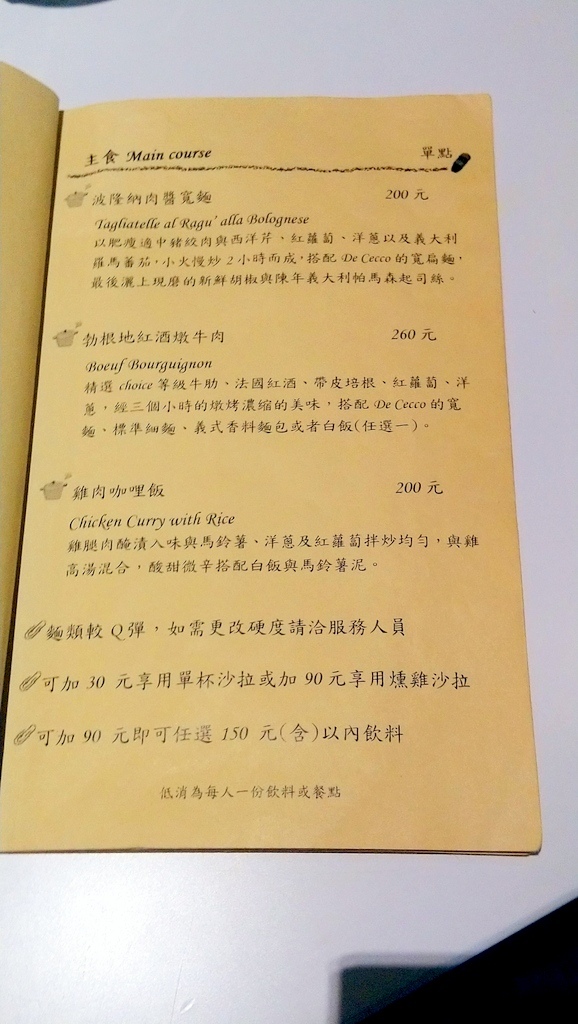 主食 Main course 單點
波隆納肉醬寬麵 200 元
Tagliatelle al Ragu' alla Bolognese
以肥瘦適中豬絞肉與西洋芹、紅蘿蔔、洋蔥以及義大利
羅馬蕃茄，小火慢炒 2 小時而成，搭配 De Cecco 的寬扁麵，
最後灑上現磨的新鮮胡椒與陳年義大利帕馬森起司絲。
勃根地紅酒燉牛肉 260 元
Boeuf Bourguignon
精選 choice 等級牛肋、法國紅酒、帶皮培根、紅蘿蔔、洋
蔥，經三個小時的燉烤濃縮的美味，搭配 De Cecco 的寬
麵、標準細麵、義式香料麵包或者白飯(任選一)。
雞肉咖哩飯 200 元
Chicken Curry with Rice
雞腿肉醃漬入味與馬鈴薯、洋蔥及紅蘿蔔拌炒均勻，與雞
高湯混合，酸甜微辛搭配白飯與馬鈴薯泥。
麵類較 Q 彈，如需更改硬度請洽服務人員
可加 30 元享用單杯沙拉或加 90 元享用燻雞沙拉
可加 90 元即可任選 150 元(含)以內飲料
低消為每人一份飲料或餐點